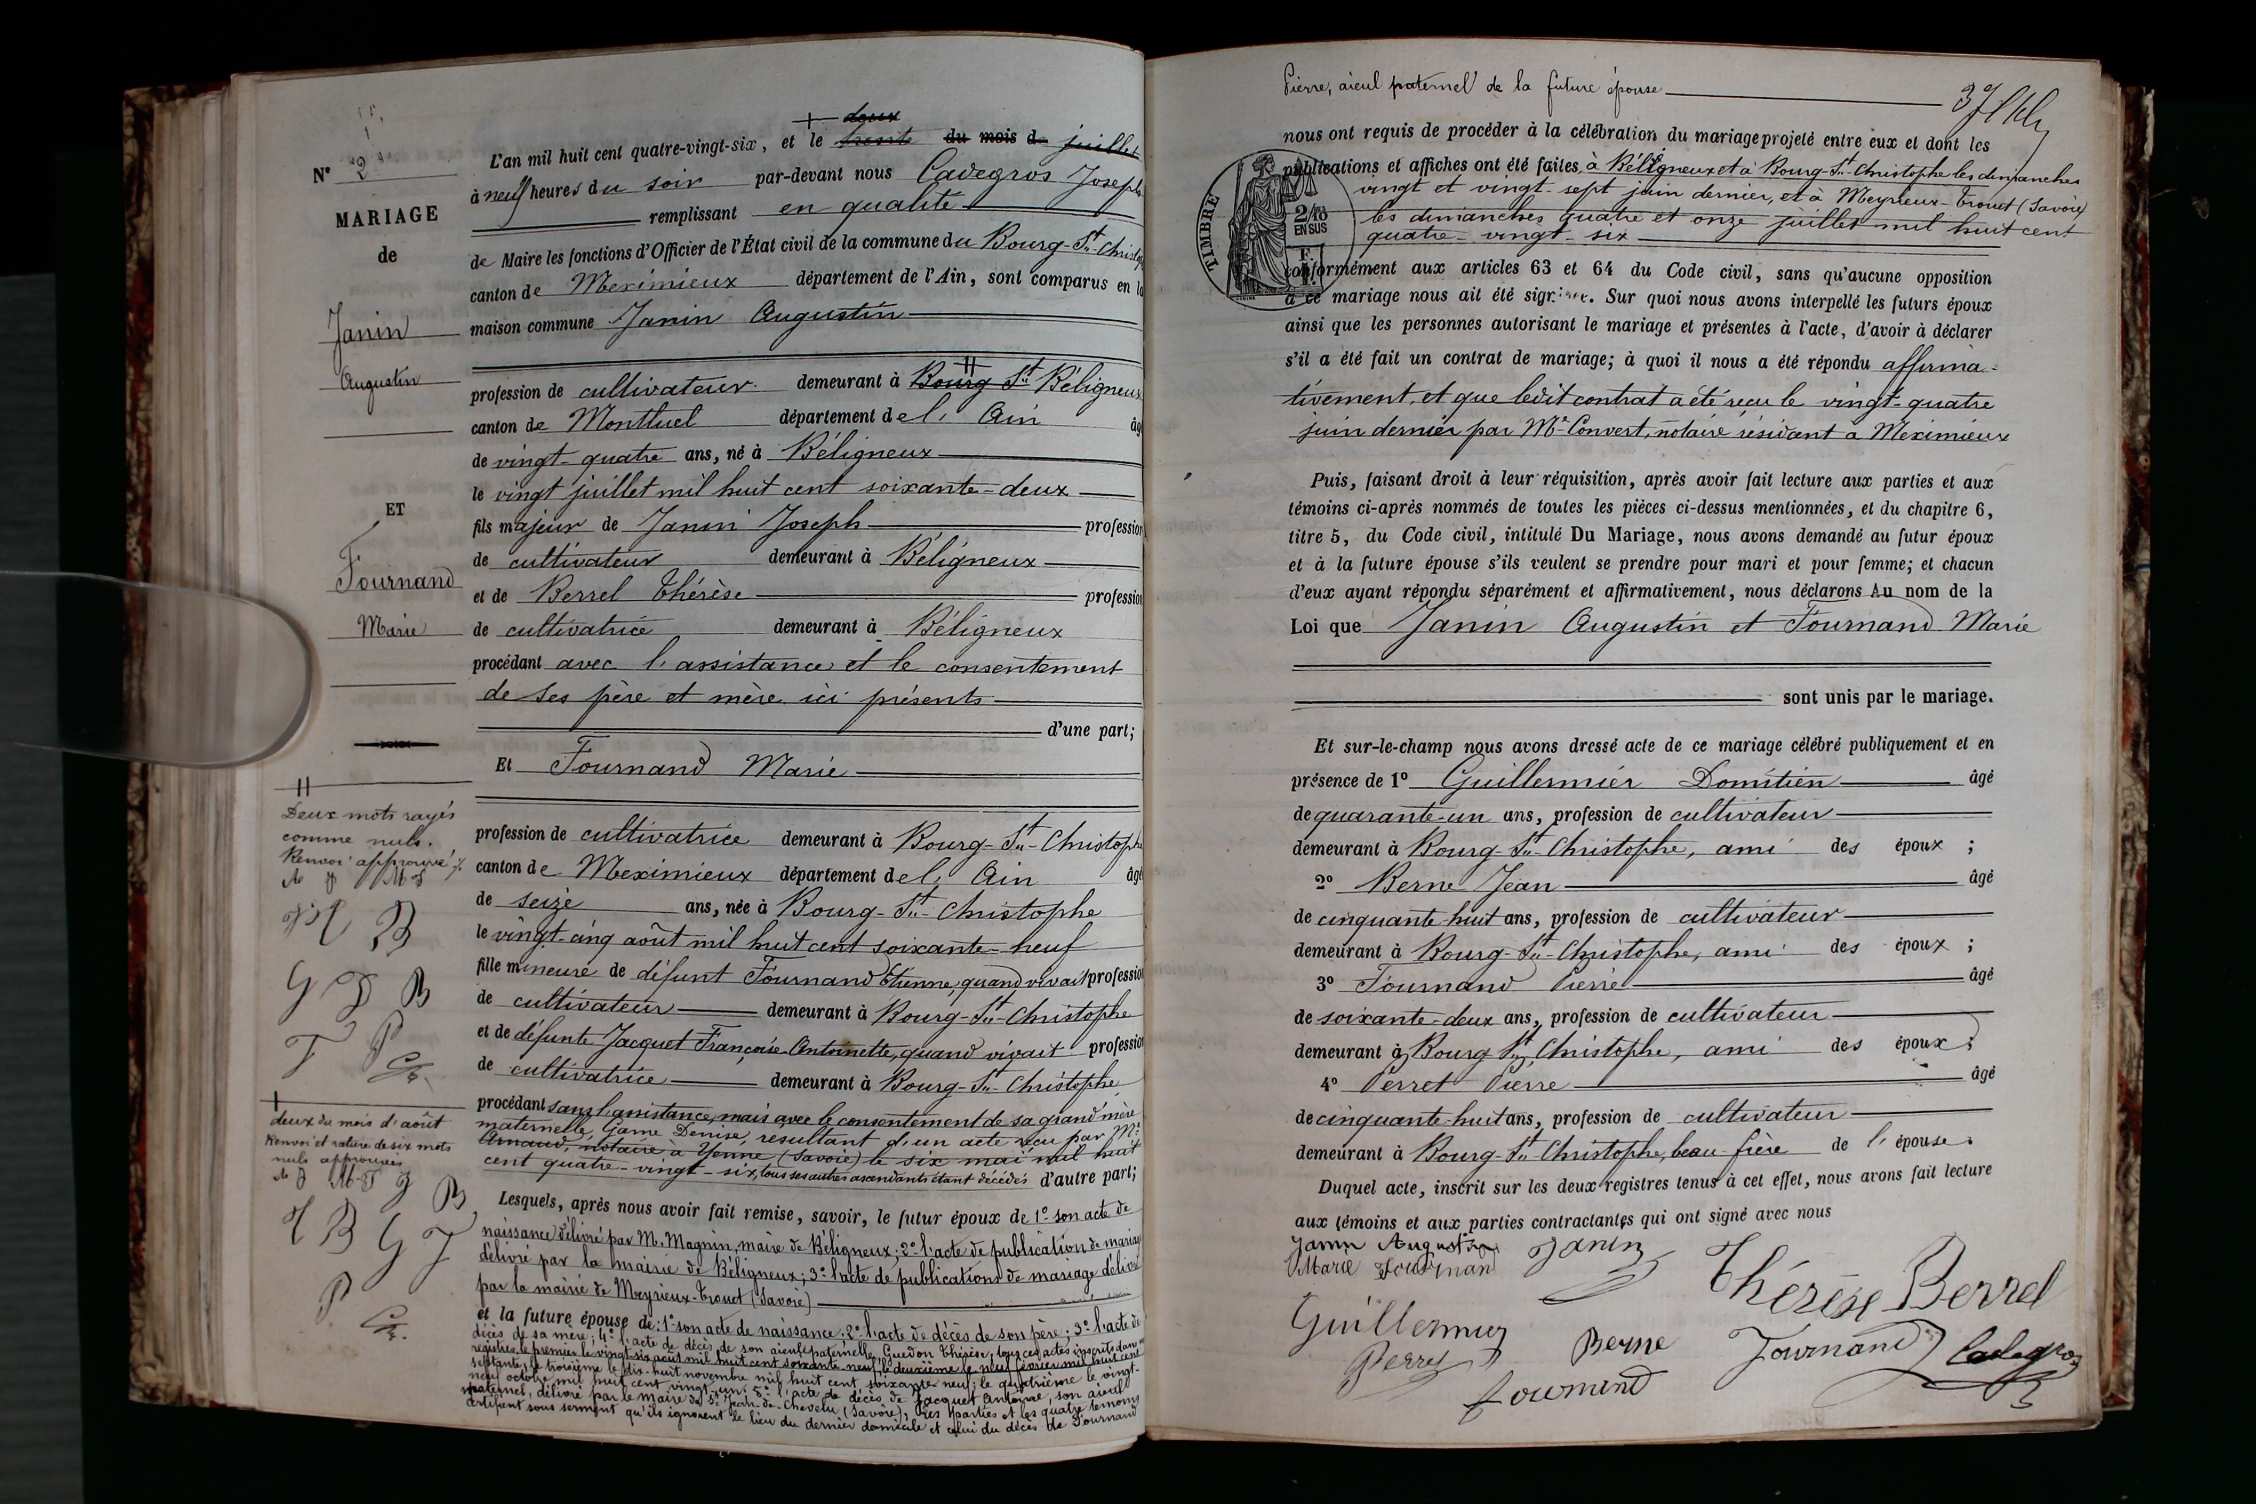 N° 2
MARIAGE
de
Janin
Augustin
ET
Fournand
Marie
Deux mots rayés
comme nuls.
Renvoi approuvé
A J M F
M B
G F B
F P
deux du mois d'août
Renvoi et rature de six mots
nuls approuvés
A J M-F J B
T B G F
P
deux
L'an mil huit cent quatre-vingt-six, et le trente du mois de juillet
à neuf heures du soir par-devant nous Cadegros Joseph
remplissant en qualité
de Maire les fonctions d'Officier de l'État civil de la commune du Bourg-St-Christophe
canton de Meximieux département de l'Ain, sont comparus en la
maison commune Janin Augustin
profession de cultivateur demeurant à Bourg St Béligneux
canton de Montluel département de l'Ain âgé
de vingt-quatre ans, né à Béligneux
le vingt juillet mil huit cent soixante-deux
fils majeur de Janin Joseph profession
de cultivateur demeurant à Béligneux
et de Berrel Thérèse profession
de cultivatrice demeurant à Béligneux
procédant avec l'assistance et le consentement
de ses père et mère ici présents
d'une part;
Et Fournand Marie
profession de cultivatrice demeurant à Bourg-St-Christophe
canton de Meximieux département de l'Ain âgé
de seize ans, née à Bourg-St-Christophe
le vingt-cinq août mil huit cent soixante-neuf
fille mineure de défunt Fournand Etienne, quand vivait profession
de cultivateur demeurant à Bourg-St-Christophe
et de défunte Jacquet Françoise Antoinette, quand vivait profession
de cultivatrice demeurant à Bourg-St-Christophe
procédant sans l'assistance, mais avec le consentement de sa grand'mère
maternelle, Game Denise, résultant d'un acte reçu par Me
Arnaud, notaire à Yenne (Savoie) le six mai mil huit
cent quatre-vingt-six, tous ses autres ascendants étant décédés d'autre part;
Lesquels, après nous avoir fait remise, savoir, le futur époux de 1° son acte de
naissance délivré par M. Magnin, maire de Béligneux; 2° l'acte de publication de mariage
délivré par la mairie de Béligneux; 3° l'acte de publications de mariage délivré
par la mairie de Meyrieux-Trouet (Savoie)
et la future épouse de: 1° son acte de naissance; 2° l'acte de décès de son père; 3° l'acte de
décès de sa mère; 4° l'acte de décès de son aïeule paternelle, Guédon Thérèse, tous ces actes inscrits dans
registres, le premier le vingt-six août mil huit cent soixante-neuf, le deuxième le neuf février mil huit cent
septante, le troisième le dix-huit novembre mil huit cent soixante-neuf; le quatrième le vingt-
neuf octobre mil huit cent vingt-un; 5° l'acte de décès de Jacquet Antoine, son aïeul
maternel, délivré par le maire de St Jean-de-Chevelu (Savoie); les parties et les quatre témoins
certifiant sous serment qu'ils ignorent le lieu du dernier domicile et celui du décès de Fournand
Pierre, aïeul paternel de la future épouse
37
nous ont requis de procéder à la célébration du mariage projeté entre eux et dont les
publications et affiches ont été faites à Béligneux et à Bourg-St-Christophe les dimanches
vingt et vingt-sept juin dernier, et à Meyrieux-Trouet (Savoie)
les dimanches quatre et onze juillet mil huit cent
quatre-vingt-six
TIMBRE
2/10 EN SUS
conformément aux articles 63 et 64 du Code civil, sans qu'aucune opposition
à ce mariage nous ait été signifiée. Sur quoi nous avons interpellé les futurs époux
ainsi que les personnes autorisant le mariage et présentes à l'acte, d'avoir à déclarer
s'il a été fait un contrat de mariage; à quoi il nous a été répondu affirma-
tivement, et que ledit contrat a été reçu le vingt-quatre
juin dernier par Me Convert, notaire résidant a Meximieux
Puis, faisant droit à leur réquisition, après avoir fait lecture aux parties et aux
témoins ci-après nommés de toutes les pièces ci-dessus mentionnées, et du chapitre 6,
titre 5, du Code civil, intitulé Du Mariage, nous avons demandé au futur époux
et à la future épouse s'ils veulent se prendre pour mari et pour femme; et chacun
d'eux ayant répondu séparément et affirmativement, nous déclarons Au nom de la
Loi que Janin Augustin et Fournand Marie
sont unis par le mariage.
Et sur-le-champ nous avons dressé acte de ce mariage célébré publiquement et en
présence de 1° Guillermier Domitien âgé
de quarante-un ans, profession de cultivateur
demeurant à Bourg-St-Christophe, ami des époux;
2° Berne Jean âgé
de cinquante-huit ans, profession de cultivateur
demeurant à Bourg-St-Christophe, ami des époux;
3° Fournand Pierre âgé
de soixante-deux ans, profession de cultivateur
demeurant à Bourg St Christophe, ami des époux;
4° Perret Pierre âgé
de cinquante-huit ans, profession de cultivateur
demeurant à Bourg-St-Christophe, beau-frère de l'épouse.
Duquel acte, inscrit sur les deux registres tenus à cet effet, nous avons fait lecture
aux témoins et aux parties contractantes qui ont signé avec nous
Janin Augustin Janin
Marie Fournand Thérèse Berrel
Guillermier Berne Fournand Cadegros
Perret fournand